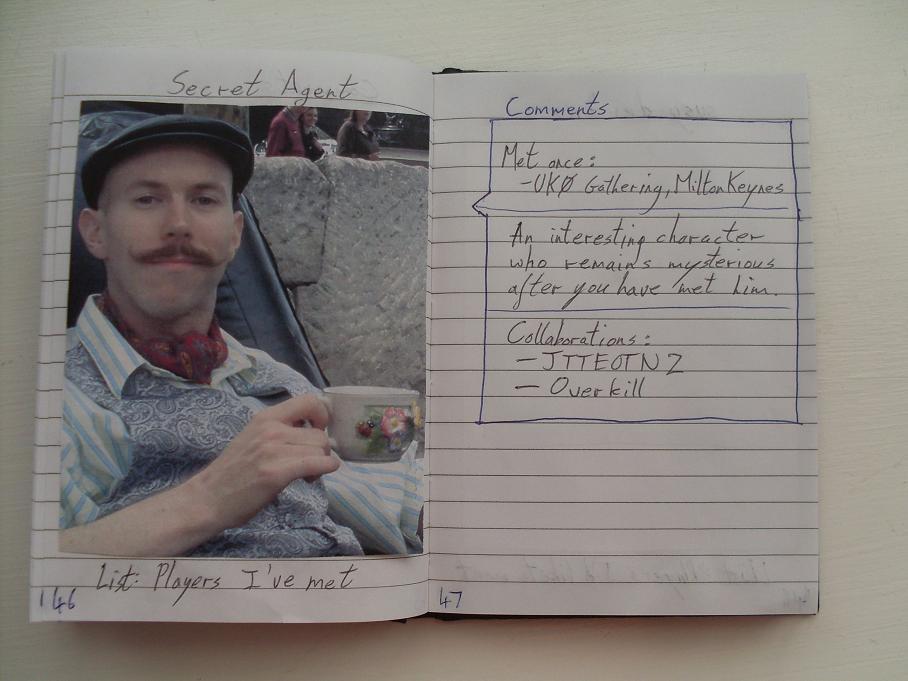 Secret Agent
List: Players I've met
146
Comments
Met once:
-UKØ Gathering, Milton Keynes
An interesting character
who remains mysterious
after you have met him.
Collaborations:
- JTTEOTN 2
- Overkill
47